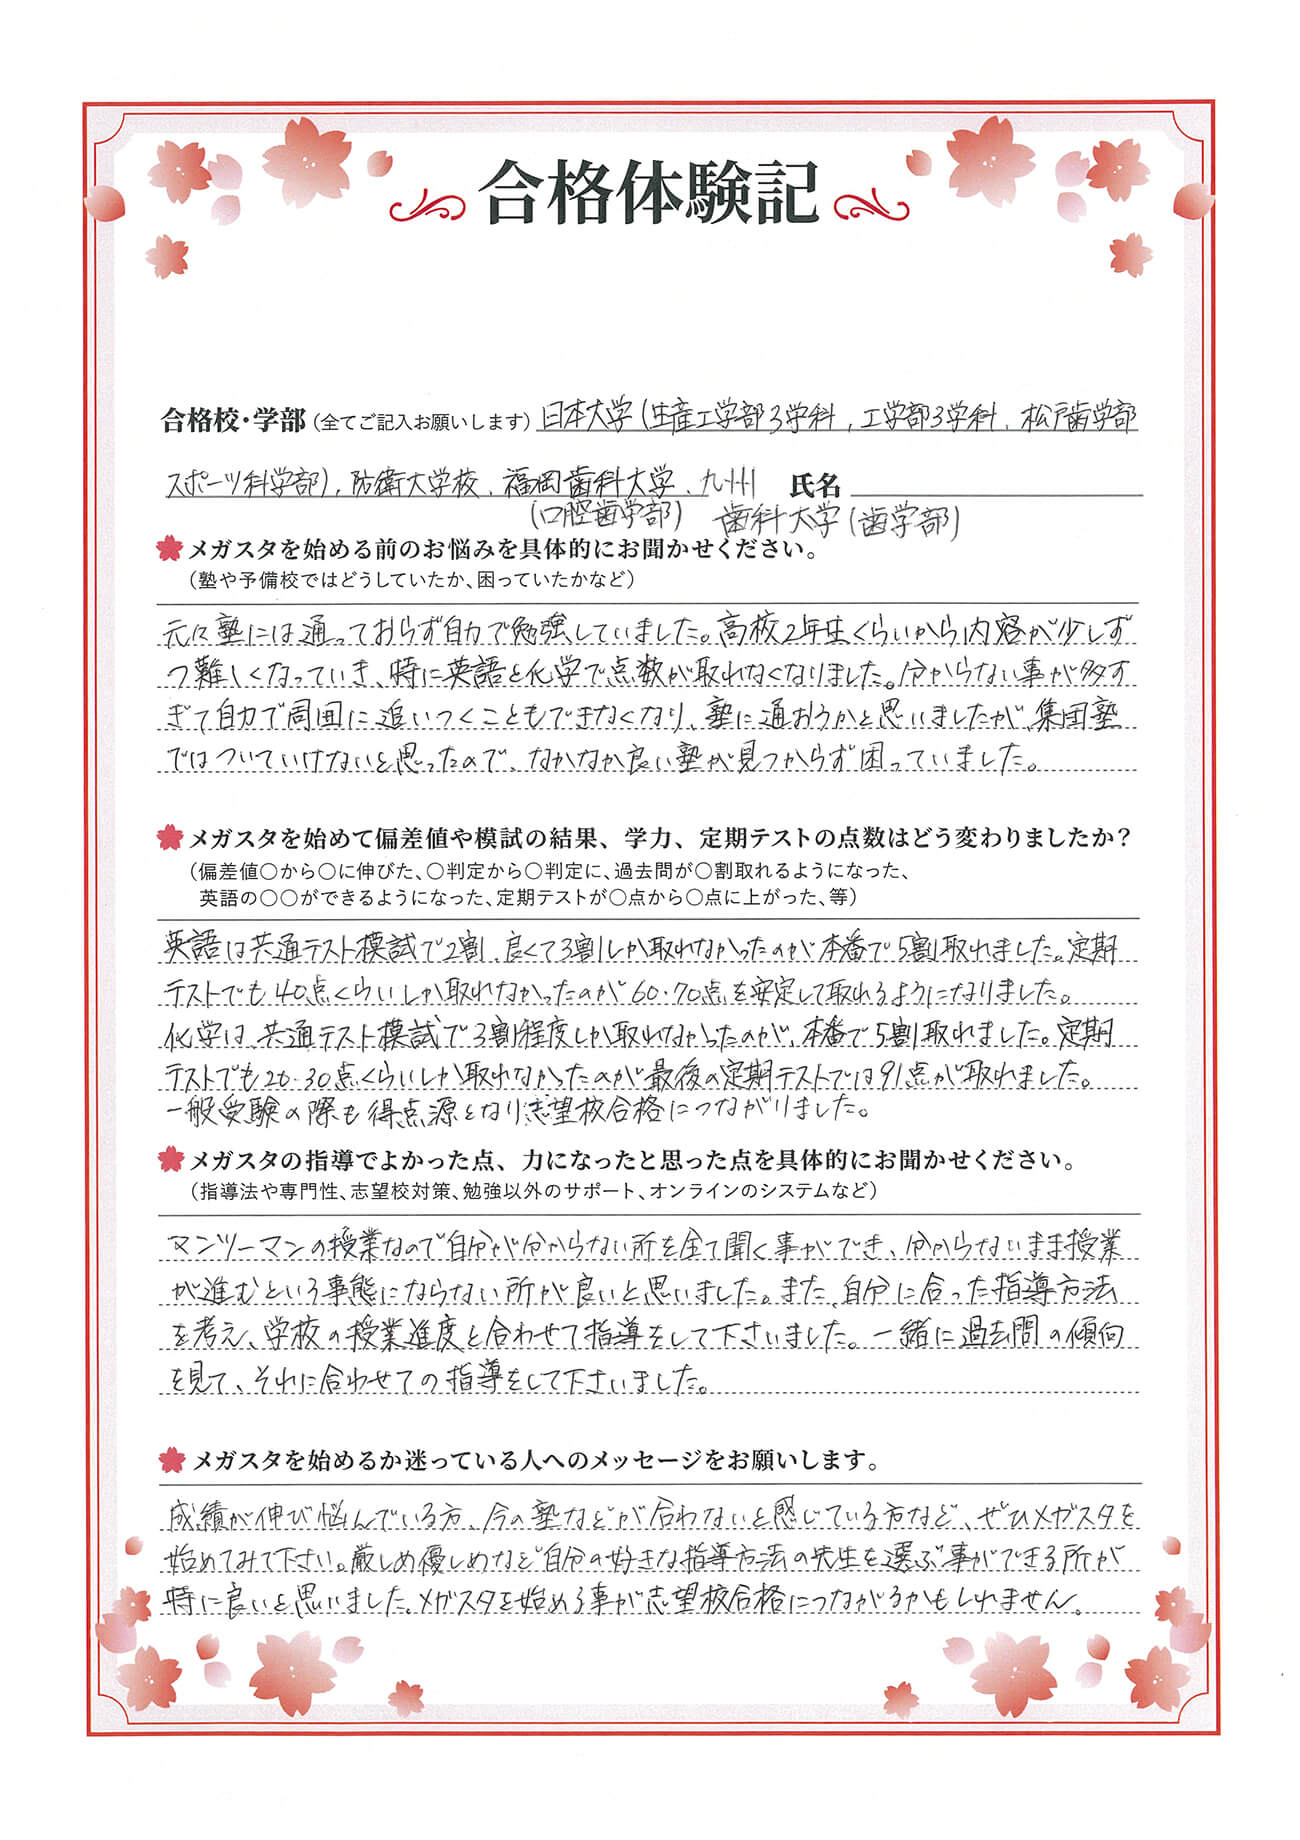 合格体験記
合格校・学部(全てご記入お願いします) 日本大学(生産工学部3学科, 工学部3学科, 松戸歯学部
スポーツ科学部), 防衛大学校, 福岡歯科大学, 九州 氏名
(口腔歯学部) 歯科大学(歯学部)
メガスタを始める前のお悩みを具体的にお聞かせください。
(塾や予備校ではどうしていたか、困っていたかなど)
元々塾には通っておらず自力で勉強していました。高校2年生くらいから内容が少しず
つ難しくなっていき、時に英語と化学で点数が取れなくなりました。分からない事が多す
ぎて自力で周囲に追いつくこともできなくなり、塾に通おうかと思いましたが、集団塾
ではついていけないと思ったので、なかなか良い塾が見つからず困っていました。
メガスタを始めて偏差値や模試の結果、学力、定期テストの点数はどう変わりましたか?
(偏差値○から○に伸びた、○判定から○判定に、過去問が○割取れるようになった、
英語の○○ができるようになった、定期テストが○点から○点に上がった、等)
英語は共通テスト模試で2割、良くて3割しか取れなかったのが本番で5割取れました。定期
テストでも40点くらいしか取れなかったのが60・70点を安定して取れるようになりました。
化学は、共通テスト模試で3割程度しか取れなかったのが、本番で5割取れました。定期
テストでも20・30点くらいしか取れなかったのが最後の定期テストでは91点が取れました。
一般受験の際も得点源となり志望校合格につながりました。
メガスタの指導でよかった点、力になったと思った点を具体的にお聞かせください。
(指導法や専門性、志望校対策、勉強以外のサポート、オンラインのシステムなど)
マンツーマンの授業なので自分が分からない所を全て聞く事ができ、分からないまま授業
が進むという事態にならない所が良いと思いました。また、自分に合った指導方法
を考え、学校の授業進度と合わせて指導をして下さいました。一緒に過去問の傾向
を見て、それに合わせての指導をして下さいました。
メガスタを始めるか迷っている人へのメッセージをお願いします。
成績が伸び悩んでいる方、今の塾などが合わないと感じている方など、ぜひメガスタを
始めてみて下さい。厳しめ優しめなど自分の好きな指導方法の先生を選ぶ事ができる所が
時に良いと思いました。メガスタを始める事が志望校合格につながるかもしれません。